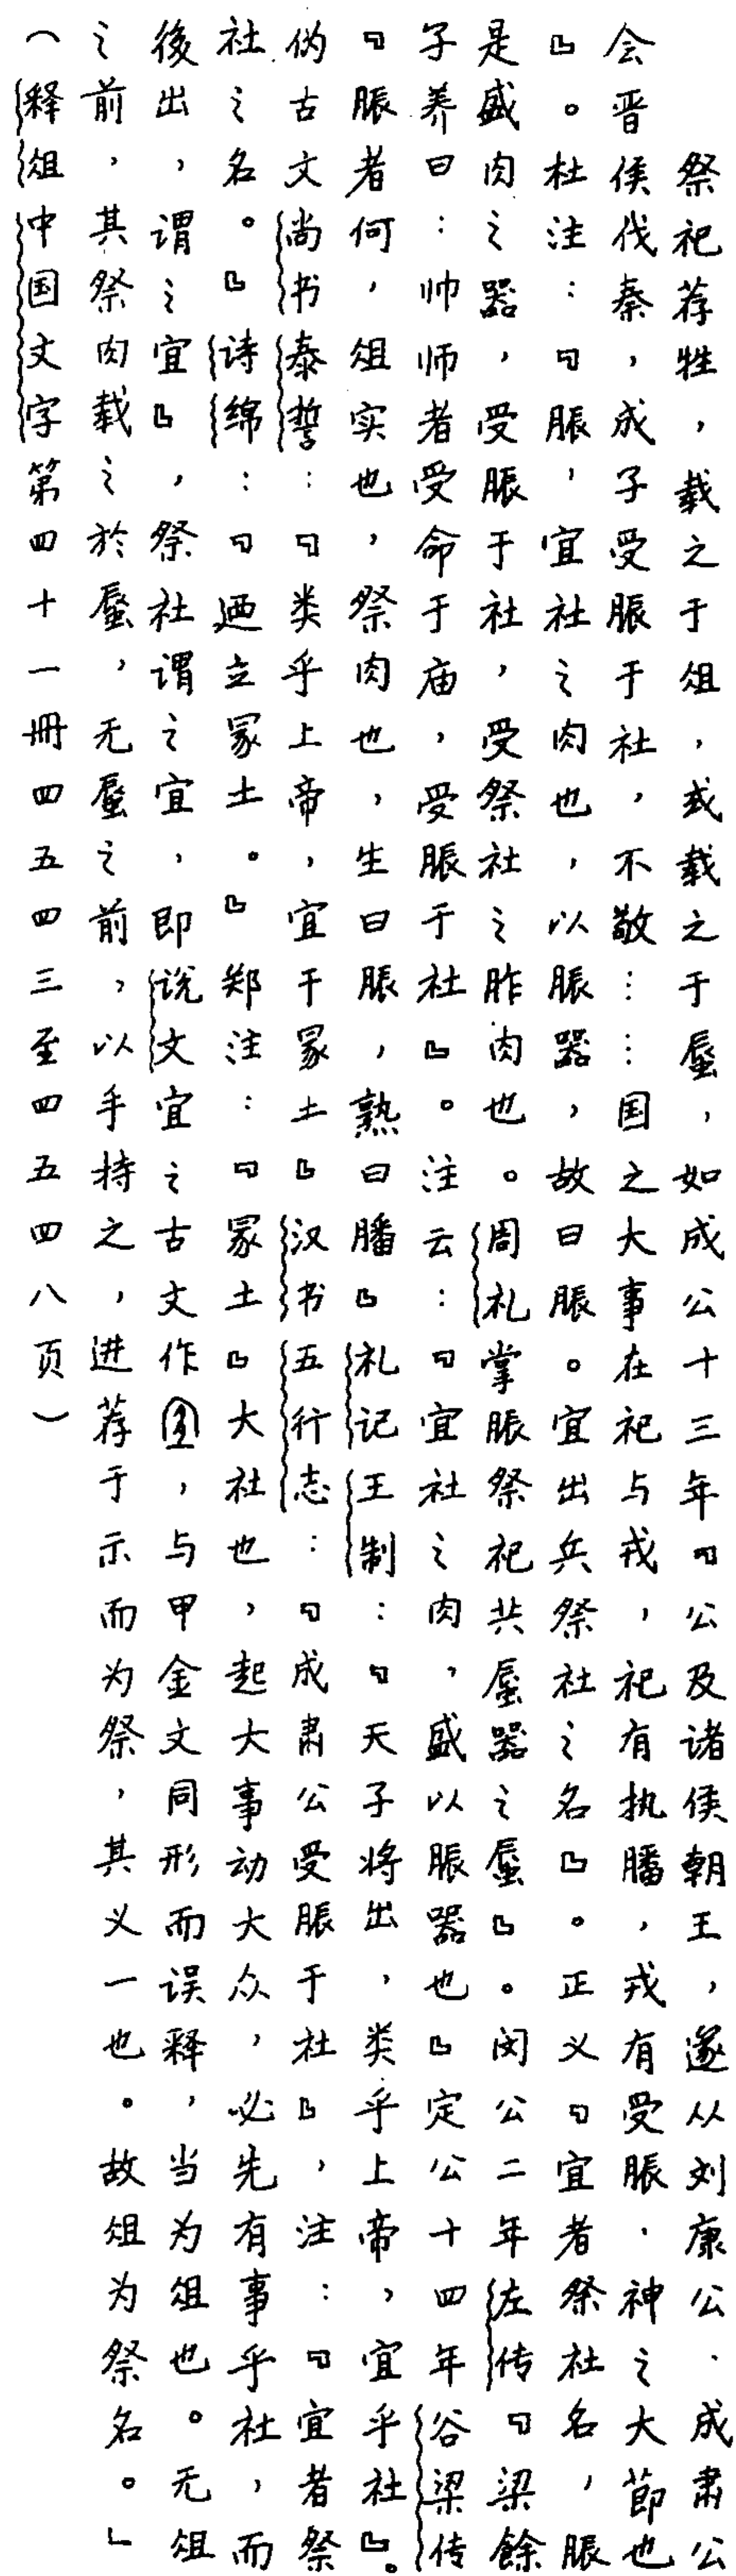 祭祀荐牲，载之于俎，或载之于蜃，如成公十三年『公及诸侯朝王，遂从刘康公、成肃公
会晋侯伐秦，成子受脤于社，不敬……国之大事在祀与戎，祀有执膰，戎有受脤，神之大節也
』。杜注：『脤，宜社之肉也，以脤器，故曰脤。宜出兵祭社之名』。正义『宜者祭社名，脤
是盛肉之器，受脤于社，受祭社之胙肉也。周礼掌脤祭祀共蜃器之蜃』。闵公二年左传『梁餘
子养曰：帅师者受命于庙，受脤于社』。注云：『宜社之肉，盛以脤器也』定公十四年谷梁传
『脤者何，俎实也，祭肉也，生曰脤，熟曰膰』礼记王制：『天子将出，类乎上帝，宜乎社』。
伪古文尚书泰誓：『类乎上帝，宜于冢土』汉书五行志：『成肃公受脤于社』，注：『宜者祭
社之名。』诗绵：『迺立冢土。』郑注：『冢土』大社也，起大事动大众，必先有事乎社，而
後出，谓之宜』，祭社谓之宜，即说文宜之古文作，与甲金文同形而误释，当为俎也。无俎
之前，其祭肉载之於蜃，无蜃之前，以手持之，进荐于示而为祭，其义一也。故俎为祭名。」
（释俎中国文字第四十一冊四五四三至四五四八页）